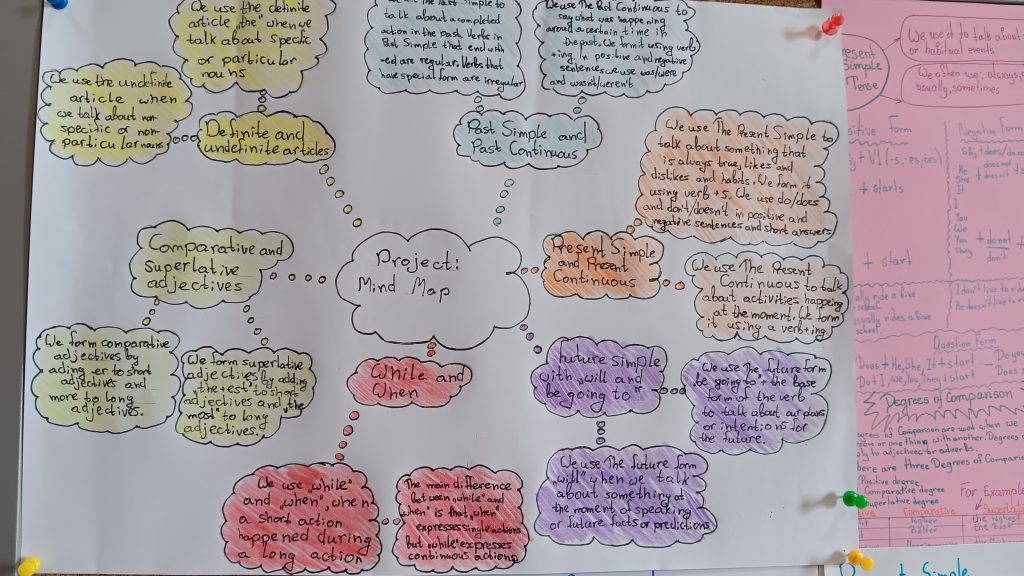 We use the definite
article „the" when we
talk about specific
or particular
nouns
We use the undefinite
article when
we talk about non
specific or non-
particular nouns
Definite and
undefinite articles
talk about a completed
action in the past. Verbs in
Past Simple that end with
-ed are regular. Verbs that
have special form are irregular
We use The Past Continuous to
say what was happening
around a certain time in
the past. We form it using verb
+ing. In positive and negative
sentences we use was/were
and wasn't/weren't
Past Simple and
Past Continuous
We use The Present Simple to
talk about something that
is always true, likes and
dislikes and habits. We form it
using verb +s. We use do/does
and don't/doesn't in positive and
negative sentences and short answers
Present Simple
and Present
Continuous
We use The Present
Continuous to talk
about activities happeing
at the moment. We form
it using a verb+ing.
Project:
Mind Map
Comparative and
superlative
adjectives
We form comparative
adjectives by
ading -er to short
adjectives and
more to long
adjectives.
We form superlative
adjectives by adding
the -est to short
adjectives and „the
most" to long
adjectives.
While and
When
We use „while"
and „when", when
a short action
happened during
a long action
The main difference
between „while" and
„when" is that „when"
expresses single actions
but „while" expresses
continuous actions
Future simple
with „will and
be going to"
We use the future form
„be going to" + the base
form of the verb
to talk about our plans
or intentions for
the future.
We use The future form
„will" when we talk
about something at
the moment of speaking
or future facts or predictions
Present
Simple
Tense
We use it to talk about
or habitual events
We often use: always,
usually, sometimes
Form
+ V1 (-s, -es, ies)
+ starts
+ start
Negative Form
He
She
It
I
You
We
You
They
+ do not
don't
I don't like to
Question Form
Does + He, She, It + start
Do + I, we, You, They + start
Degrees of Comparison
Degrees of Comparison are used when we
with another. Degrees
to adjectives or adverbs.
There are three Degrees of
Positive degree
Comparative degree
Superlative degree
For Example
Comparative
higher
the highest
Simple